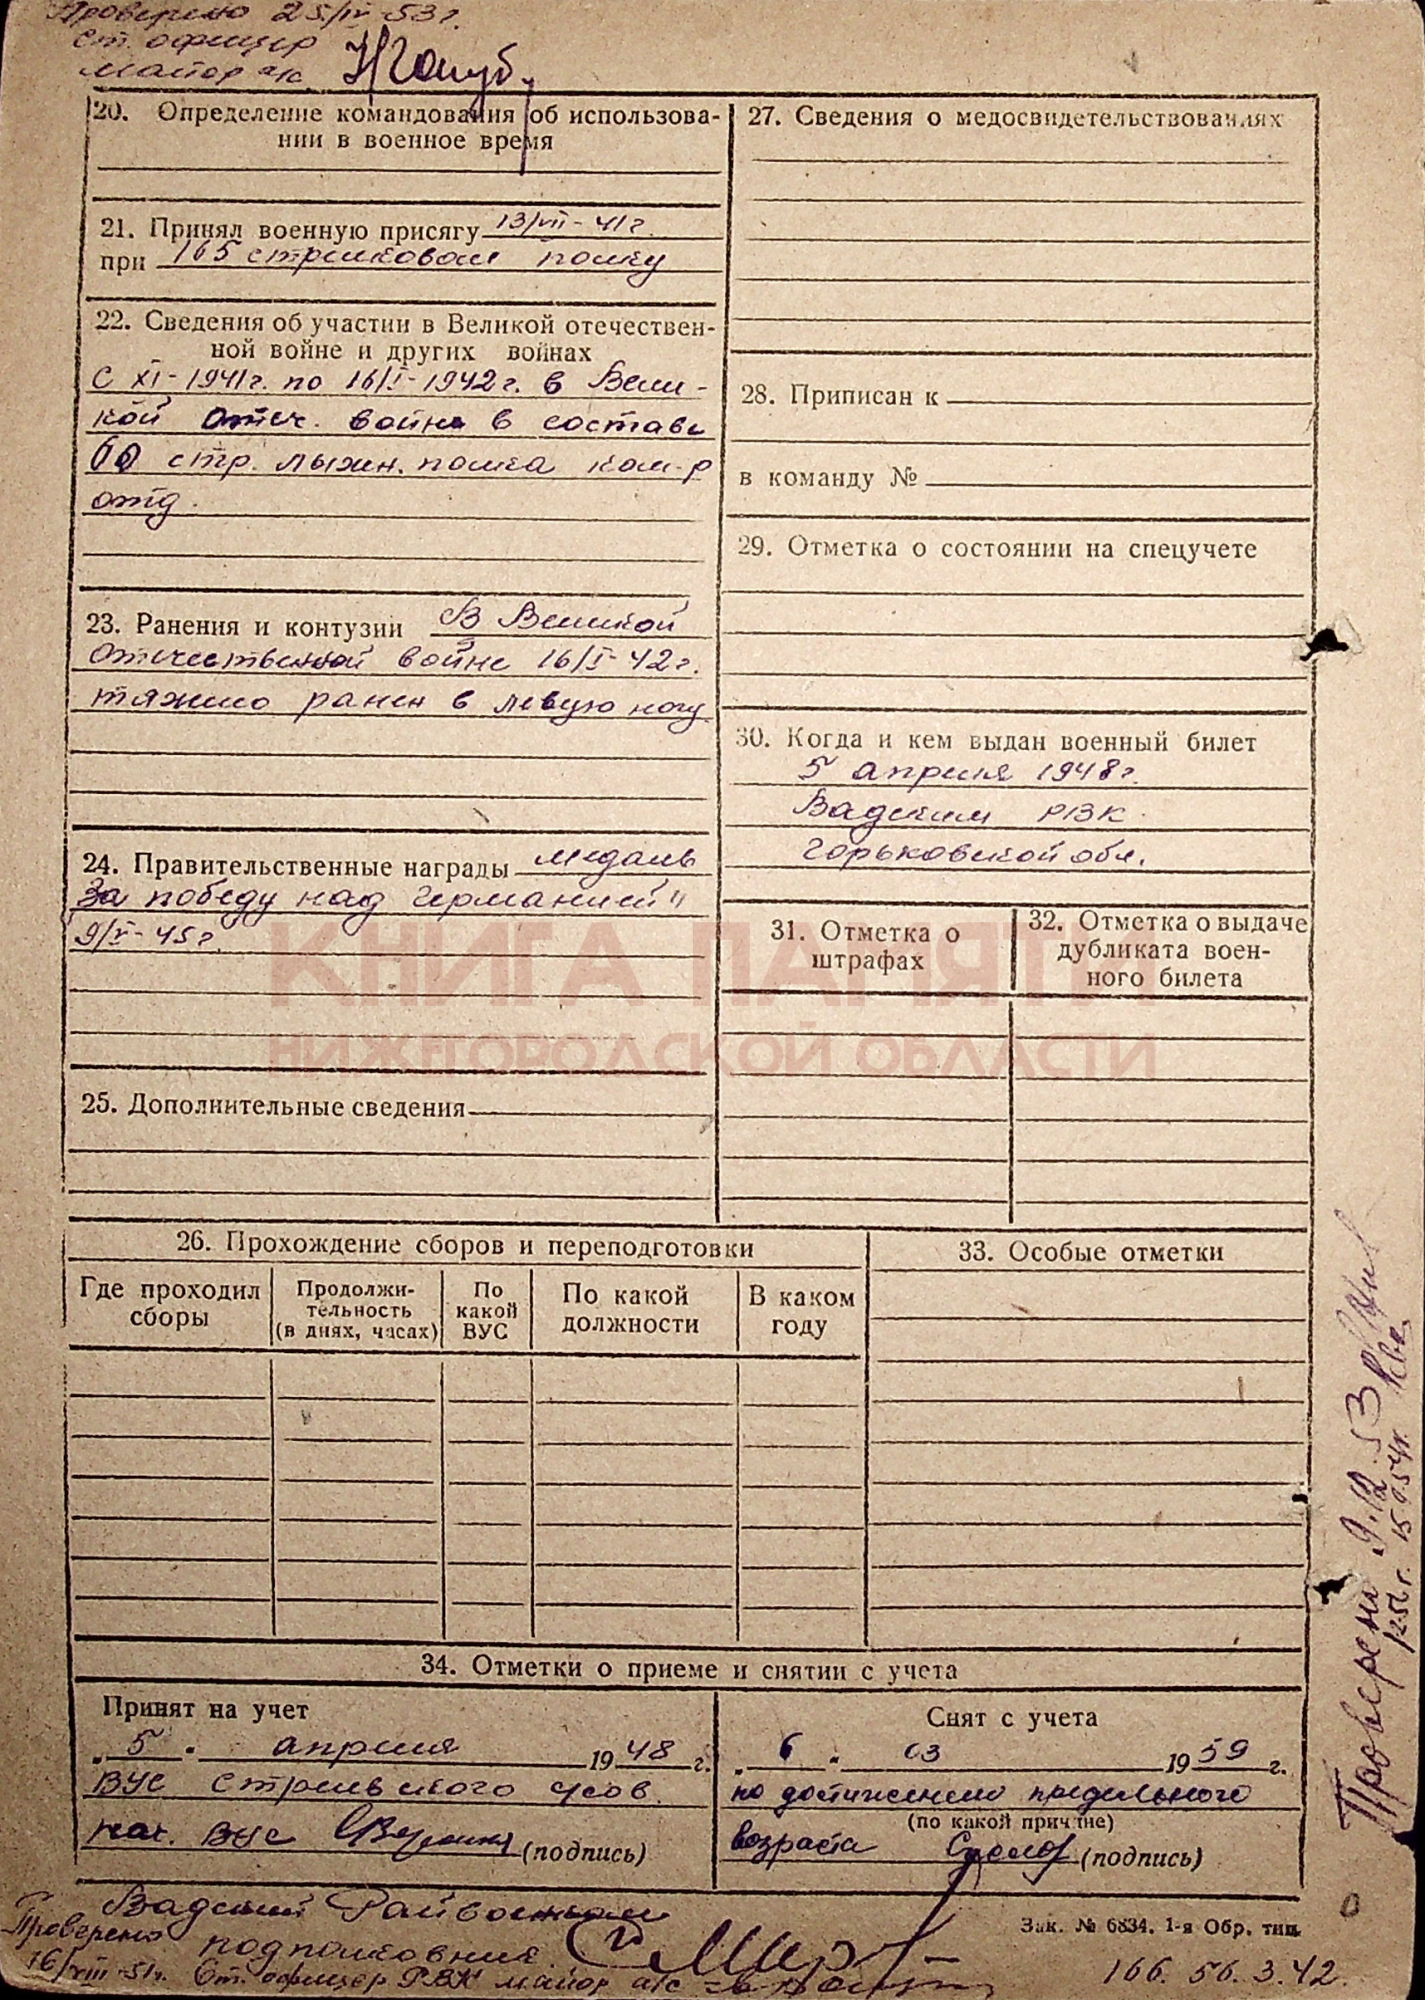 Проверено 25/IV-53г.
ст. офицер
майор а/с
20. Определение командования об использова-
нии в военное время
21. Принял военную присягу 13/VII-41г.
при 165 стрелковом полку
22. Сведения об участии в Великой отечествен-
ной войне и других войнах
С XI-1941г. по 16/I-1942г. в Вели-
кой отеч. войне в составе
стр. лыжн. полка ком-р
отд.
23. Ранения и контузии В Великой
отечественной войне 16/I-42г.
тяжело ранен в левую ногу
24. Правительственные награды медаль
За победу над Германией"
9/V-45г.
25. Дополнительные сведения
27. Сведения о медосвидетельствованиях
28. Приписан к
в команду №
29. Отметка о состоянии на спецучете
30. Когда и кем выдан военный билет
5 апреля 1948г.
Вадским РВК
Горьковской обл.
31. Отметка о
штрафах
32. Отметка о выдаче
дубликата воен-
ного билета
КНИГА ПАМЯТИ
НИЖЕГОРОДСКОЙ ОБЛАСТИ
26. Прохождение сборов и переподготовки
Где проходил
сборы
Продолжи-
тельность
(в днях, часах)
По
какой
ВУС
По какой
должности
В каком
году
33. Особые отметки
34. Отметки о приеме и снятии с учета
Принят на учет
„ 5 " апреля 1948 г.
ВУС
нач. (подпись)
Снят с учета
„ 6 " 03 1959 г.
по достижению предельного
(по какой причине)
возраста (подпись)
Вадский Райвоенком
подполковник
Проверено
16/VIII-51г. Ст. офицер РВК майор а/с
Зак. № 6834. 1-я Обр. тип.
166. 56. 3. 42.
Проверено 9.12.53